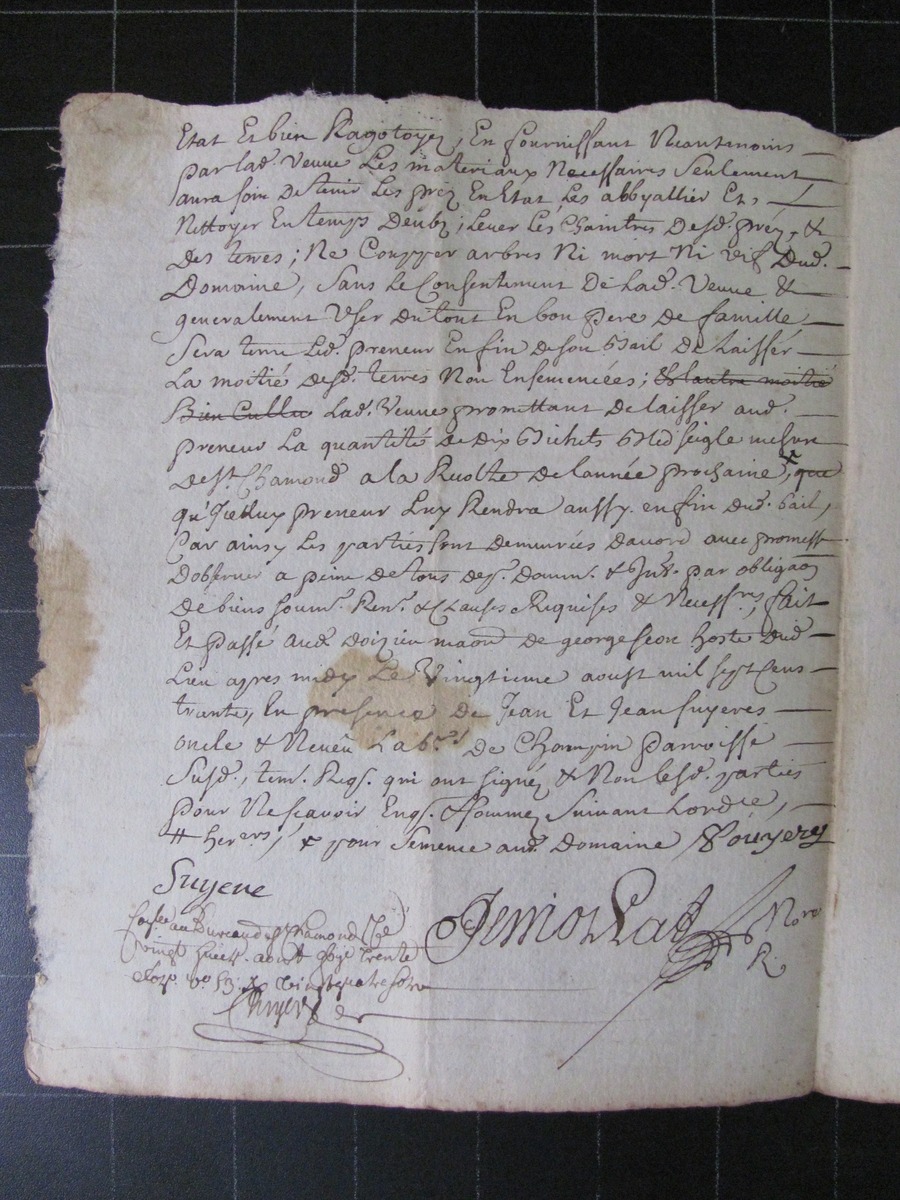 Etat Et bien Ragotoyez, En fournissant Neantmoins
par lad. Veuve Les materiaux Necessaires Seulement
aura soin De tenir Les prez En Etat Les abbyallier Et
Nettoyer En temps Deub; Lever Les Chaintres Desd. prez, &
Des terres; Ne Coupper arbres Ni mort Ni vif Dud.
Domaine, Sans Le Consentement De Lad. Veuve &
generalement User Du tout En bon pere De famille
Sera tenu Led. preneur En fin de son Bail De Laisser
La moitié Desd. terres Non Ensemencées; & Lautre moitié
Bien Lad. Veuve promettant De laisser aud.
preneur La quantité de Dix Bichets Bled seigle mesure
de St Chamond a la Recolte de Lannée prochaine x, que
qu'Icelluy preneur Luy Rendra aussy en fin Dud. bail,
Car ainsy Les parties sont demeurées Dacord avec promesse
Dobserver a peine de tous des. Domm. & Int. par obligaon
De biens soum. Ren. & Clauses Requises & Necessres, fait
Et passé aud. Doizieu maon de george hoste Dud.
Lieu apres midy Le Vingtieme aoust mil sept Cens
trente, En presence De Jean Et Jean suyeres
oncle & Neveu Labrs De parroisse
Susd., tem. Reqs. qui ont signé & Non Lesd. parties
pour Ne scavoir Enqs. & sommez Suivant Lordce,
# hers, x pour Semence aud. Domaine
Suyere
au Bureau de St Chamond Ce
vingt aoust trente